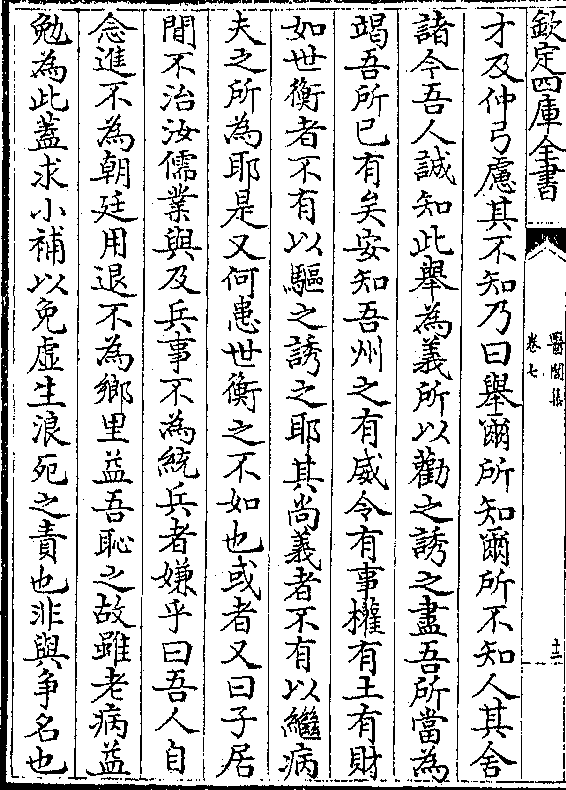 欽定四庫全書
醫閭集
卷七
十二
才及仲弓慮其不知乃曰舉爾所知爾所不知人其舍
諸今吾人誠知此舉為義所以勸之誘之盡吾所當為
竭吾所已有矣安知吾州之有威令有事權有土有財
如世衡者不有以驅之誘之耶其尚義者不有以繼病
夫之所為耶是又何患世衡之不如也或者又曰子居
閒不治汝儒業與及兵事不為統兵者嫌乎曰吾人自
念進不為朝廷用退不為鄉里益吾恥之故雖老病益
勉為此蓋求小補以免虛生浪死之責也非與爭名也